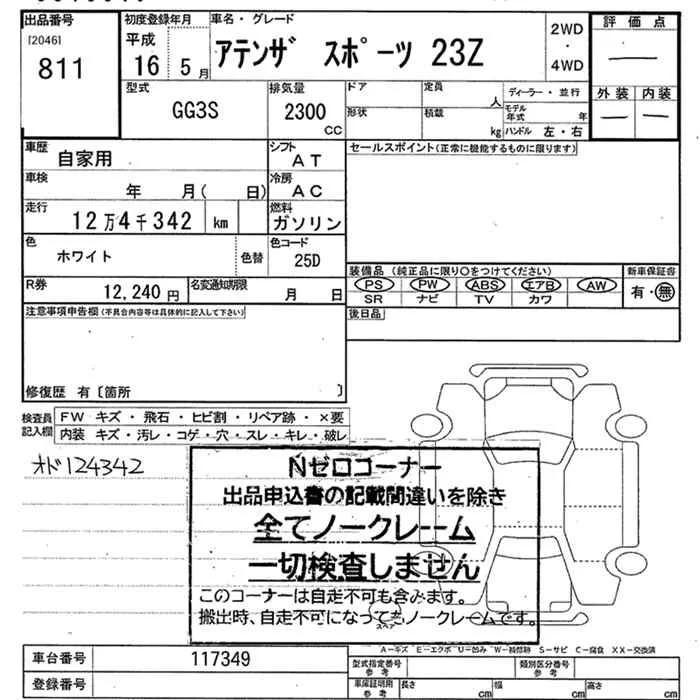 出品番号
[2046]
811
初度登録年月
平成
16 5月
車名・グレード
アテンザ スポーツ 23Z
2WD
・
4WD
評価点
―
外装 内装
― ―
型式
GG3S
排気量
2300
CC
ドア
定員
人
ディーラー・並行
形状
積載
kg
モデル年式 年
ハンドル 左・右
車歴
自家用
シフト
AT
セールスポイント(正常に機能するものに限ります)
車検
年 月( 日)
冷房
AC
走行
12万4千342 km
燃料
ガソリン
色
ホワイト
色替
色コード
25D
装備品 (純正品に限り○をつけてください)
新車保証書
PS PW ABS エアB AW
有・無
SR ナビ TV カワ
R券
12,240 円
名変通知期限
月 日
後日品
注意事項申告欄(不具合内容等は具体的に記入して下さい)
修復歴 有〔箇所 〕
検査員記入欄
FW キズ・飛石・ヒビ割・リペア跡・×要
内装 キズ・汚レ・コゲ・穴・スレ・キレ・破レ
オド124342
Nゼロコーナー
出品申込書の記載間違いを除き
全てノークレーム
一切検査しません
このコーナーは自走不可も含みます。
搬出時、自走不可になってもノークレームです。
スペア
A―キズ E―エクボ U―凹み W―補修跡 S―サビ C―腐食 XX―交換済
車台番号
117349
型式指定番号
参考
類別区分番号
参考
登録番号
車庫証明用
参考
長さ
cm
幅
cm
高さ
cm